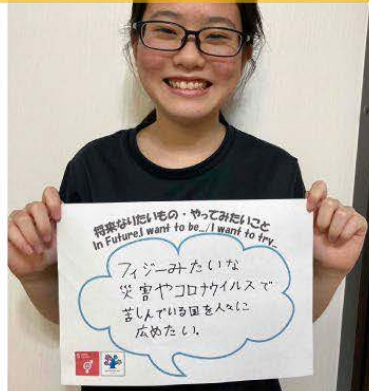 将来なりたいもの・やってみたいこと
In Future,I want to be.../I want to try...
フィジーみたいな
災害やコロナウイルスで
苦しんでいる国を人々に
広めたい。